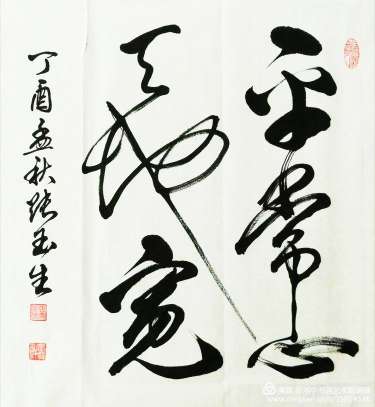 平常心
天地宽
丁酉孟秋张玉生